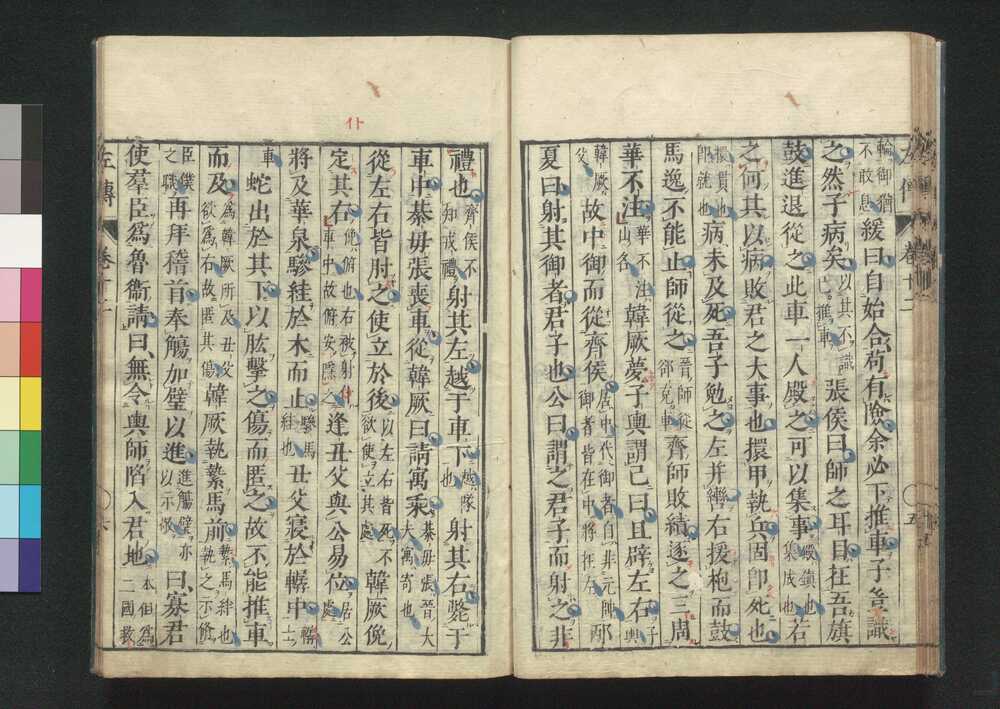 左傳 卷十二 五
輪御猶不敢息緩曰自始合苟有險余必下推車子豈識
之然子病矣以其不識己推車張侯曰師之耳目在吾旗
鼓進退從之此車一人殿之可以集事殿鎮也集成也若
之何其以病敗君之大事也擐甲執兵固即死也
擐貫也即就也病未及死吾子勉之左并轡右援枹而鼓
馬逸不能止師從之晉師從郤克車齊師敗績逐之三周
華不注華不注山名韓厥夢子輿謂己曰且辟左右子輿
韓厥父故中御而從齊侯居中代御者自非元帥御者皆在中將在左邴
夏曰射其御者君子也公曰謂之君子而射之非
仆
禮也齊侯不知戎禮射其左越于車下越隊也射其右斃于
車中綦毋張喪車從韓厥曰請寓乘綦毋張晉大夫寓寄也
從左右皆肘之使立於後以左右皆死不欲使立其處韓厥俛
定其右俛俯也右被射仆車中故俯安隱之逢丑父與公易位居公處
將及華泉驂絓於木而止驂馬絓也丑父寢於轏中轏士
車蛇出於其下以肱擊之傷而匿之故不能推車
而及爲韓厥所及丑父欲爲右故匿其傷韓厥執縶馬前縶馬絆也執之示脩
臣僕之職再拜稽首奉觴加璧以進進觴璧亦以示敬曰寡君
使羣臣爲魯衛請曰無令輿師陷入君地本但爲二國救
左傳 卷十二 六